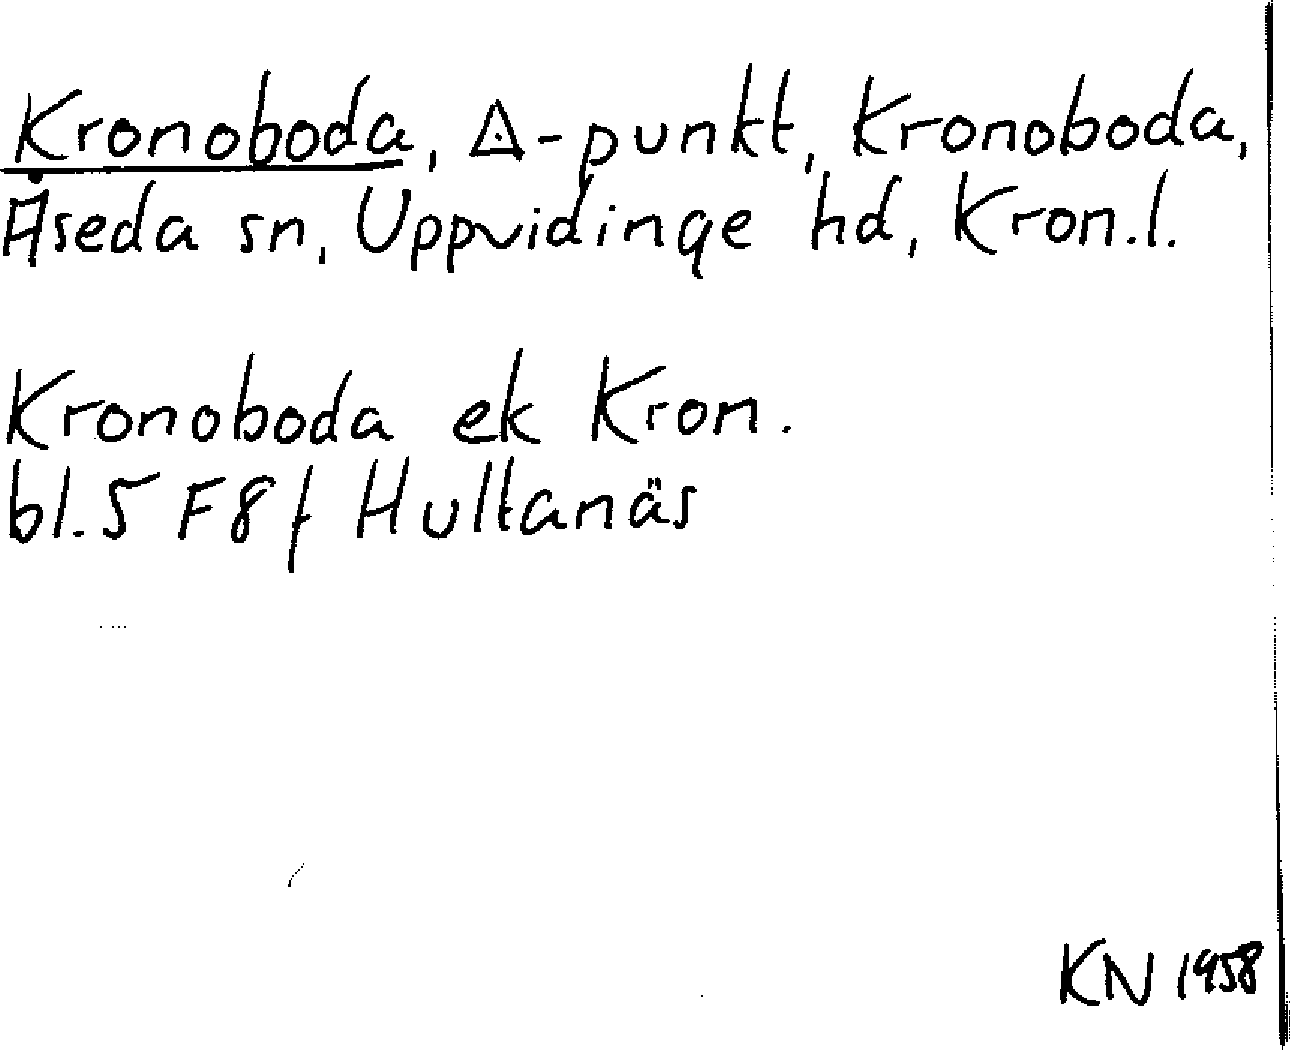 Kronoboda, ◬-punkt, Kronoboda,
Åseda sn, Uppvidinge hd, Kron.l.
Kronoboda ek Kron.
bl. 5 F8f Hultanäs
KN 1958